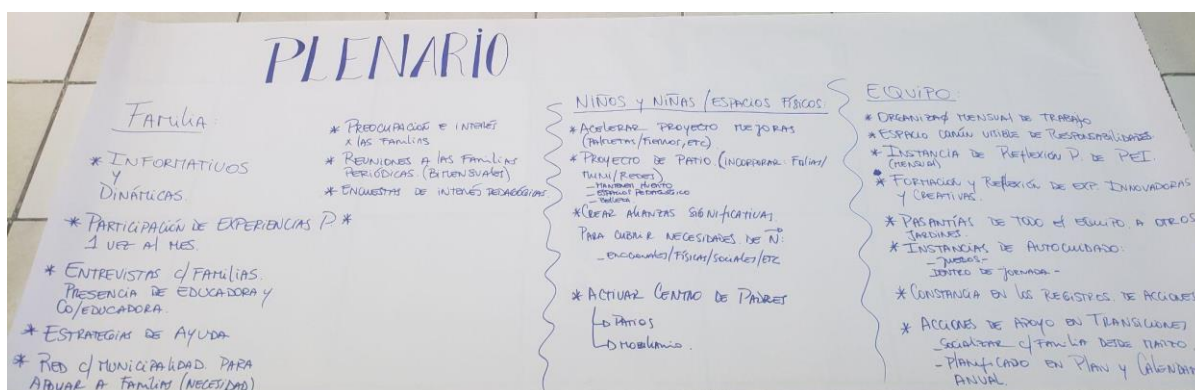 PLENARIO
Familia:
* INFORMATIVOS
Y
DINÁMICAS.
* PARTICIPACIÓN DE EXPERIENCIAS P. *
1 VEZ AL MES.
* ENTREVISTAS C/ FAMILIAS.
PRESENCIA DE EDUCADORA Y
CO/EDUCADORA.
* ESTRATEGIAS DE AYUDA
* RED C/ MUNICIPALIDAD. PARA
APOYAR A FAMILIAS (NECESIDAD)
* PREOCUPACIÓN E INTERÉS
X LAS FAMILIAS
* REUNIONES A LAS FAMILIAS
PERIÓDICAS. (BIMENSUALES)
* ENCUESTAS DE INTERÉS PEDAGÓGICAS
NIÑOS Y NIÑAS / ESPACIOS FÍSICOS.
* ACELERAR PROYECTO MEJORAS
(PALMETAS/FIERROS, ETC)
* PROYECTO DE PATIO. (INCORPORAR: Falias/
MUNI/REDES)
- MANTENER HUERTO
- ESPACIO PEDAGÓGICO
* CREAR ALIANZAS SIGNIFICATIVAS.
PARA CUBRIR NECESIDADES DE N:
- EMOCIONALES/FÍSICAS/SOCIALES/ETC
* ACTIVAR CENTRO DE PADRES
PATIOS
MOBILIARIO.
EQUIPO:
* ORGANIZAR MENSUAL DE TRABAJO
* ESPACIO COMÚN VISIBLE DE RESPONSABILIDADES
* INSTANCIA DE REFLEXIÓN P. DE PEI.
(MENSUAL)
* FORMACIÓN Y REFLEXIÓN DE EXP. INNOVADORAS
Y CREATIVAS.
* PASANTÍAS DE TODO EL EQUIPO. A OTROS
JARDINES.
* INSTANCIAS DE AUTOCUIDADO:
- JUEGOS -
DENTRO DE JORNADA -
* CONSTANCIA EN LOS REGISTROS. DE ACCIONES
* ACCIONES DE APOYO EN TRANSICIONES
- SOCIALIZAR C/ FAMILIA DESDE MARZO
- PLANIFICADO EN PLAN Y CALENDAR
ANUAL.